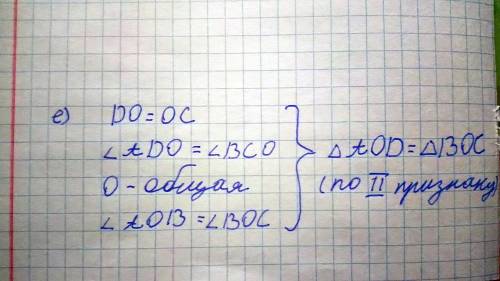 е) DO = OC
∠ADO = ∠BCO
O - общая
∠AOB = ∠BOC
△AOD = △BOC
(по II признаку)